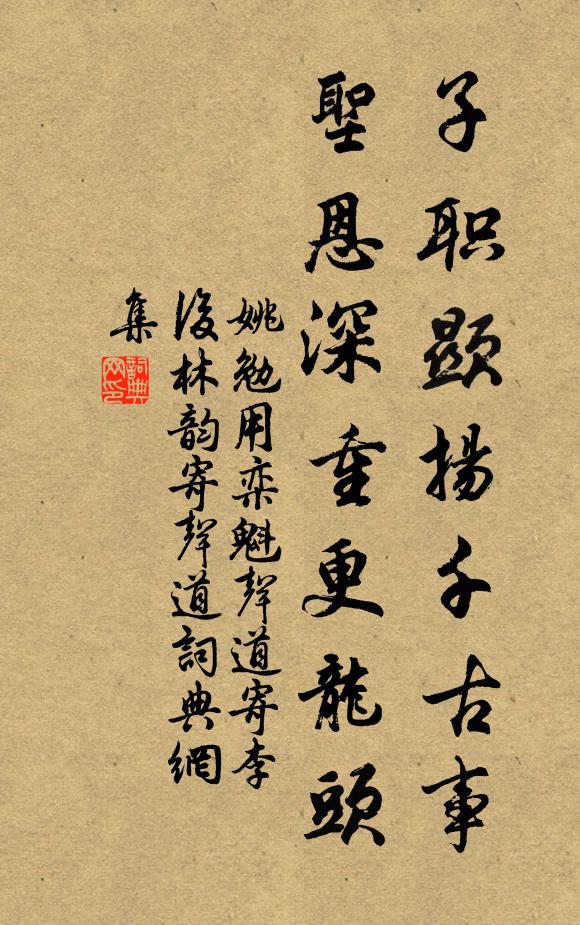 子职顯揚千古事
聖恩深重更龍頭
姚勉用栾魁聲道寄李
後林韵寄聲道詞典網
集
詞典網印